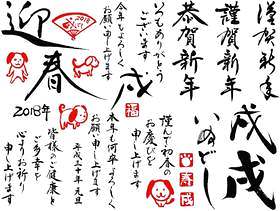 謹賀新年
謹賀新年
恭賀新年
いつもありがとう
ございます
今年もよろしく
お願い申し上げます
迎
春
2018
戌
戌
戌
いぬどし
謹んで初春の
お慶びを
申し上げます
福
寿
戌
本年も何卒よろしく
お願い申し上げます
平成三十年 元旦
2018年
皆様のご健康と
ご多幸を
心よりお祈り
申し上げます